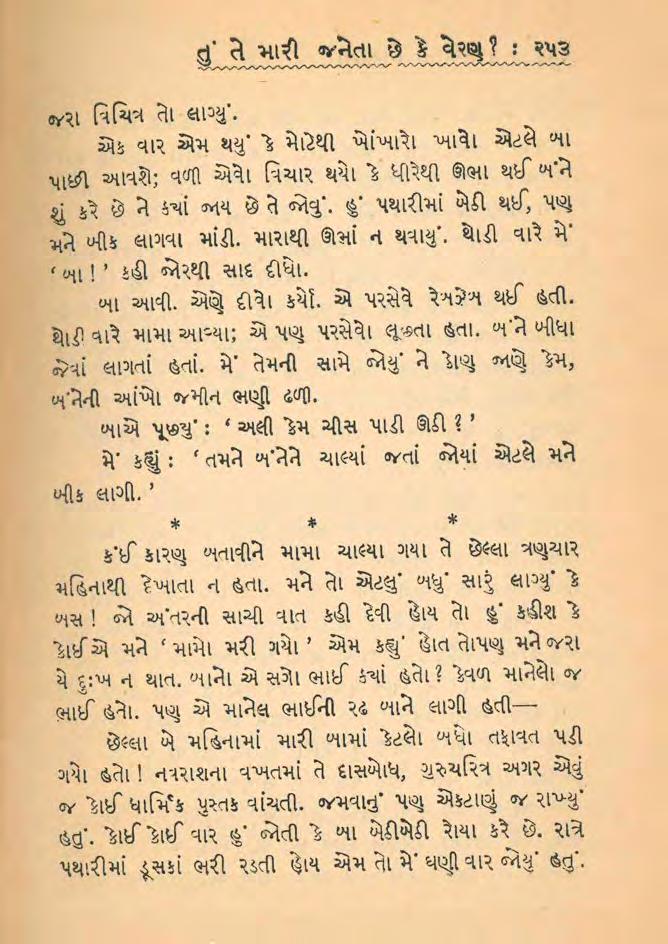 તું તે મારી જનેતા છે કે વેરણ? : ૨૫૩
જરા વિચિત્ર તો લાગ્યું.
એક વાર એમ થયું કે મોટેથી ખોંખારો ખાવો એટલે બા
પાછી આવશે; વળી એવો વિચાર થયો કે ધીરેથી ઊભા થઈ બંને
શું કરે છે ને કયાં જાય છે તે જોવું. હું પથારીમાં બેઠી થઈ, પણ
મને બીક લાગવા માંડી. મારાથી ઊભાં ન થવાયું. થોડી વારે મેં
‘બા!’ કહી જોરથી સાદ દીધો.
બા આવી. એણે દીવો કર્યો. એ પરસેવે રેબઝેબ થઈ હતી.
થોડી વારે મામા આવ્યા; એ પણ પરસેવો લૂછતા હતા. બંને બીધા
જેવાં લાગતાં હતાં. મેં તેમની સામે જોયું ને કોણ જાણે કેમ,
બંનેની આંખો જમીન ભણી ઢળી.
બાએ પૂછયું : ‘અલી કેમ ચીસ પાડી ઊઠી?’
મેં કહ્યું : ‘તમને બંનેને ચાલ્યાં જતાં જોયાં એટલે મને
બીક લાગી.’
* * *
કંઈ કારણ બતાવીને મામા ચાલ્યા ગયા તે છેલ્લા ત્રણચાર
મહિનાથી દેખાતા ન હતા. મને તો એટલું બધું સારું લાગ્યું કે
બસ! જો અંતરની સાચી વાત કહી દેવી હોય તો હું કહીશ કે
કોઈએ મને ‘મામો મરી ગયો’ એમ કહ્યું હોત તોપણ મને જરા
યે દુઃખ ન થાત. બાનો એ સગો ભાઈ કયાં હતો? કેવળ માનેલો જ
ભાઈ હતો. પણ એ માનેલ ભાઈની રઢ બાને લાગી હતી—
છેલ્લા બે મહિનામાં મારી બામાં કેટલો બધો તફાવત પડી
ગયો હતો! નવરાશના વખતમાં તે દાસબોધ, ગુરુચરિત્ર અગર એવું
જ કોઈ ધાર્મિક પુસ્તક વાંચતી. જમવાનું પણ એકટાણું જ રાખ્યું
હતું. કોઈ કોઈ વાર હું જોતી કે બા બેઠીબેઠી રોયા કરે છે. રાત્રે
પથારીમાં ડૂસકાં ભરી રડતી હોય એમ તો મેં ઘણી વાર જોયું હતું.